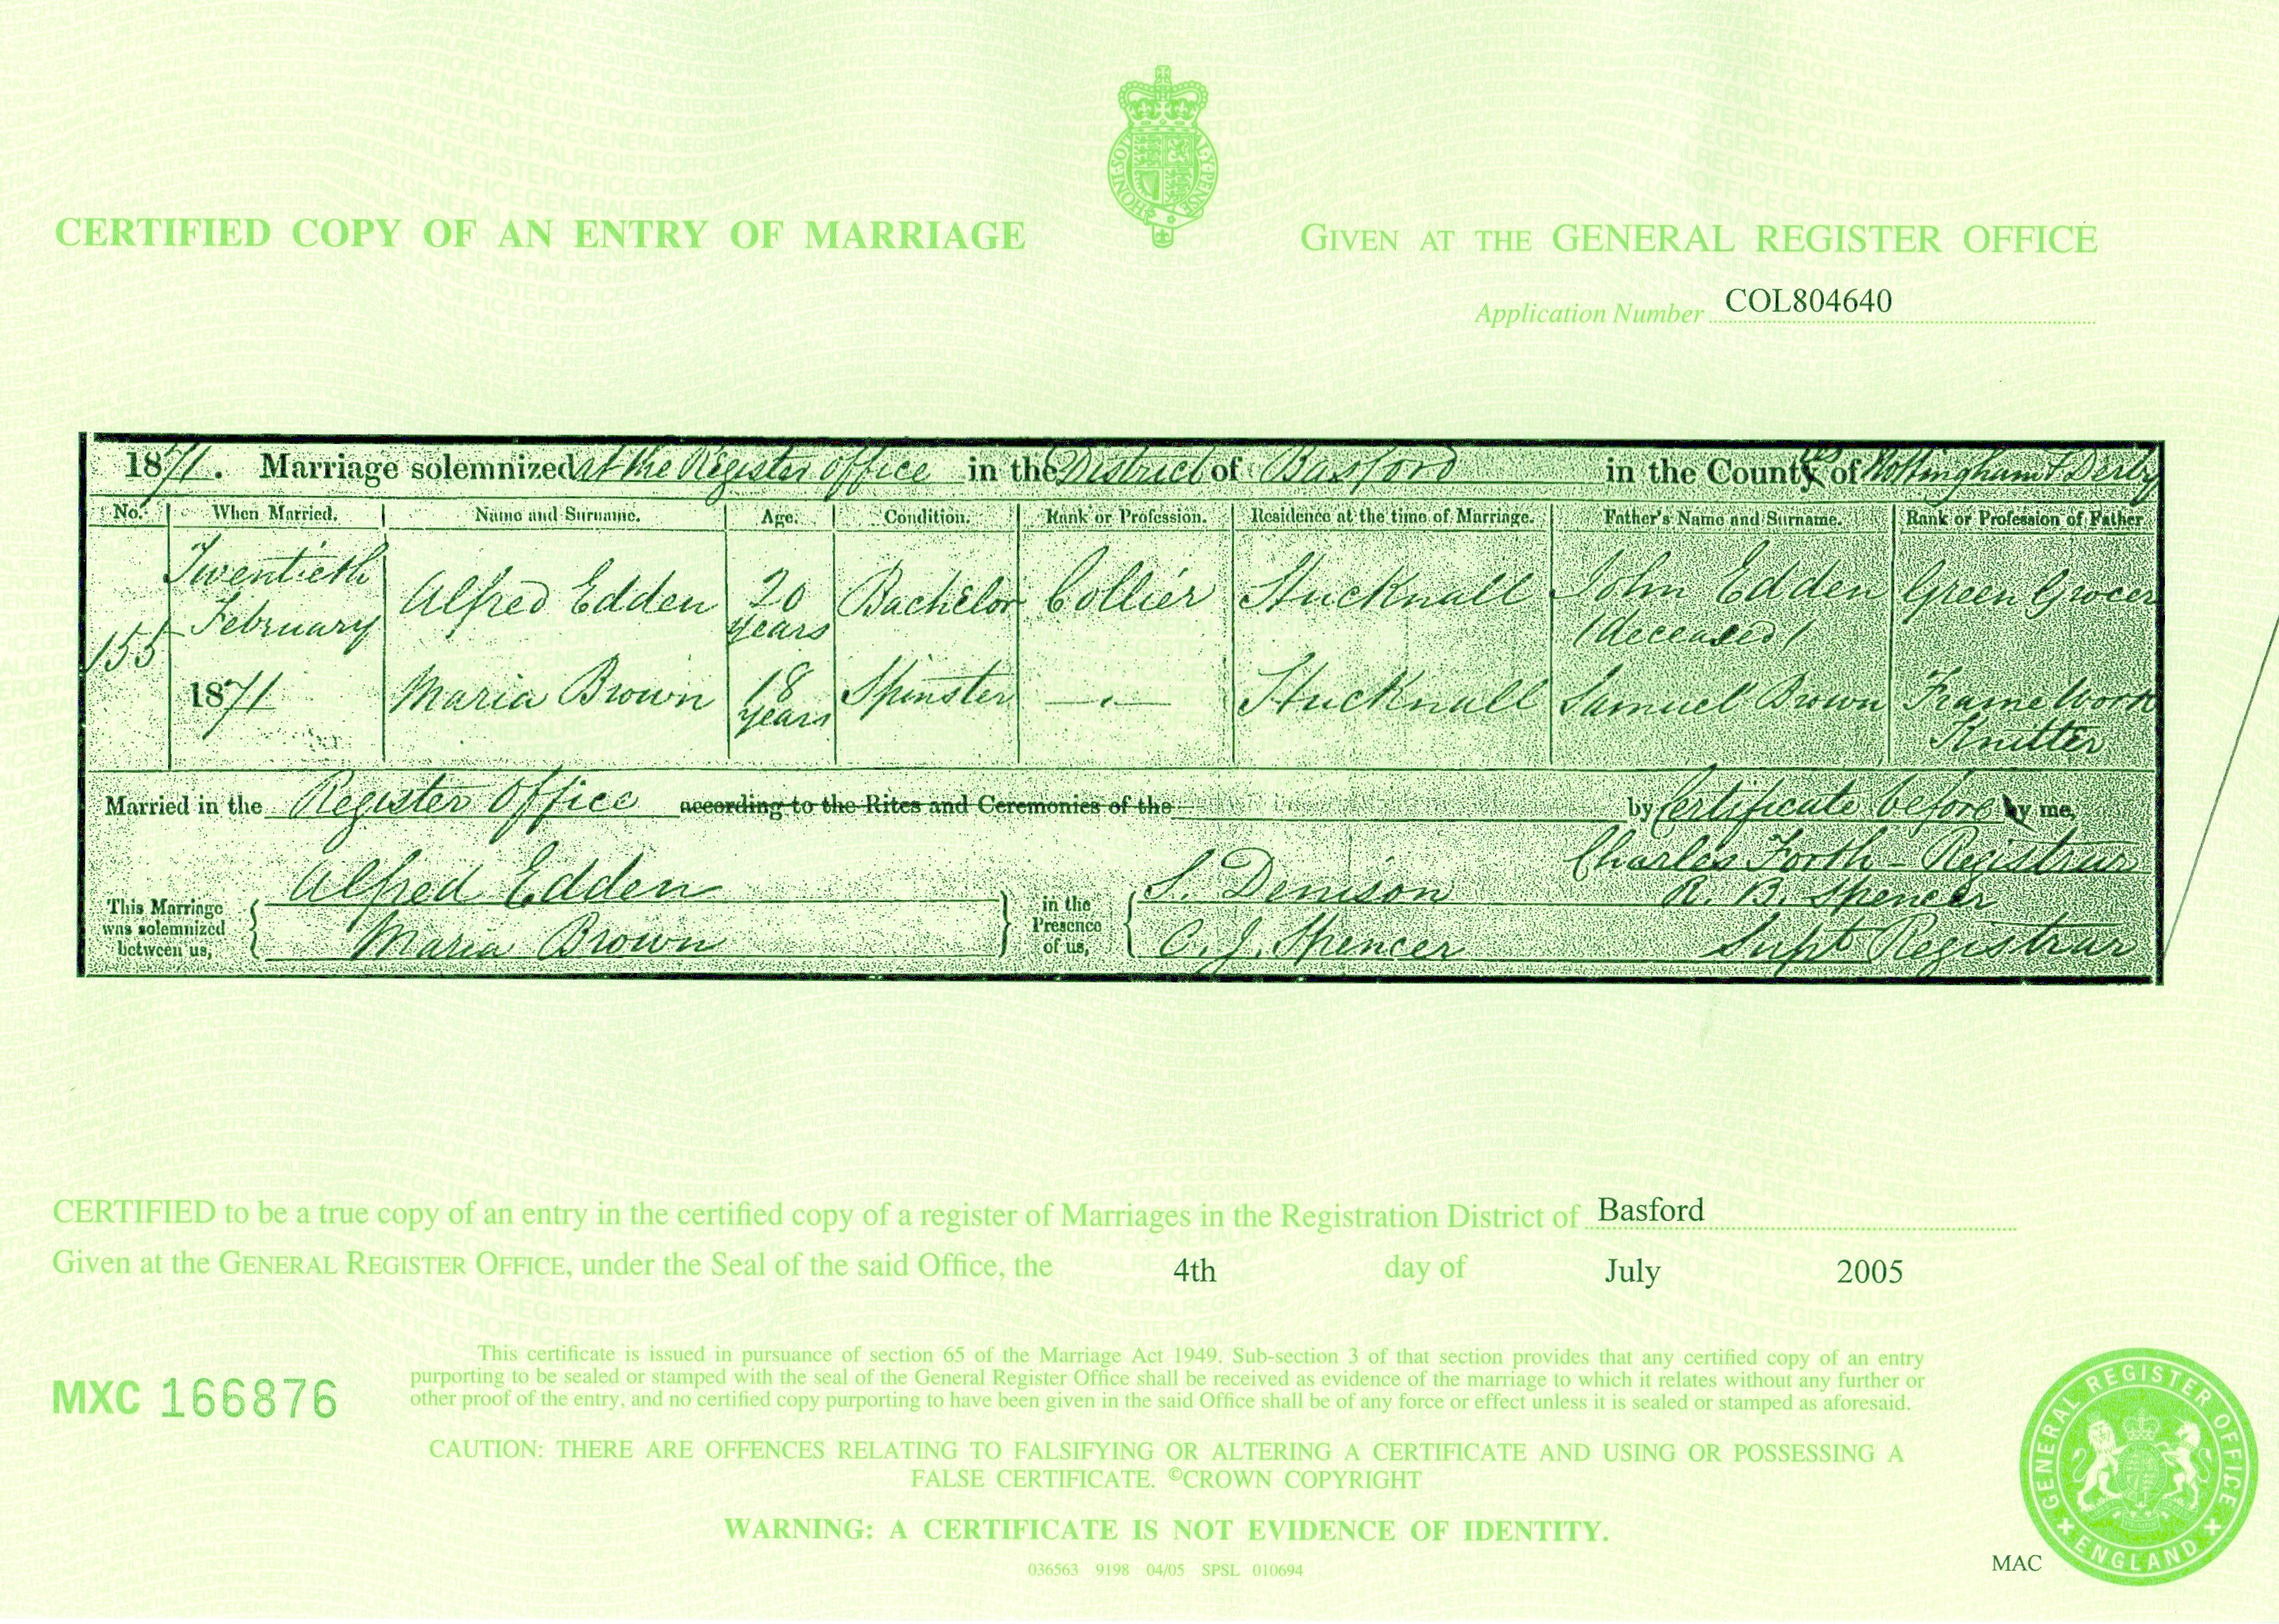 HONI·SOIT·QUI·MAL·Y·PENSE
CERTIFIED COPY OF AN ENTRY OF MARRIAGE
GIVEN AT THE GENERAL REGISTER OFFICE
Application Number COL804640
1871. Marriage solemnized at the Register office in the District of Basford in the Counties of Nottingham & Derby
No. When Married. Name and Surname. Age. Condition. Rank or Profession. Residence at the time of Marriage. Father's Name and Surname. Rank or Profession of Father
155 Twentieth February 1871
Alfred Edden 20 years Bachelor Collier Hucknall John Edden (deceased) Green Grocer
Maria Brown 18 years Spinster — Hucknall Samuel Brown Frame Work Knitter
Married in the Register Office according to the Rites and Ceremonies of the by Certificate before by me,
This Marriage was solemnized between us, Alfred Edden Maria Brown
in the Presence of us, S. Denison C. J. Spencer
Charles Forth - Registrar
R. B. Spencer
Supt Registrar
CERTIFIED to be a true copy of an entry in the certified copy of a register of Marriages in the Registration District of Basford
Given at the GENERAL REGISTER OFFICE, under the Seal of the said Office, the 4th day of July 2005
MXC 166876
This certificate is issued in pursuance of section 65 of the Marriage Act 1949. Sub-section 3 of that section provides that any certified copy of an entry
purporting to be sealed or stamped with the seal of the General Register Office shall be received as evidence of the marriage to which it relates without any further or
other proof of the entry, and no certified copy purporting to have been given in the said Office shall be of any force or effect unless it is sealed or stamped as aforesaid.
CAUTION: THERE ARE OFFENCES RELATING TO FALSIFYING OR ALTERING A CERTIFICATE AND USING OR POSSESSING A
FALSE CERTIFICATE. ©CROWN COPYRIGHT
WARNING: A CERTIFICATE IS NOT EVIDENCE OF IDENTITY.
036563 9198 04/05 SPSL 010694
MAC
GENERAL REGISTER OFFICE
ENGLAND